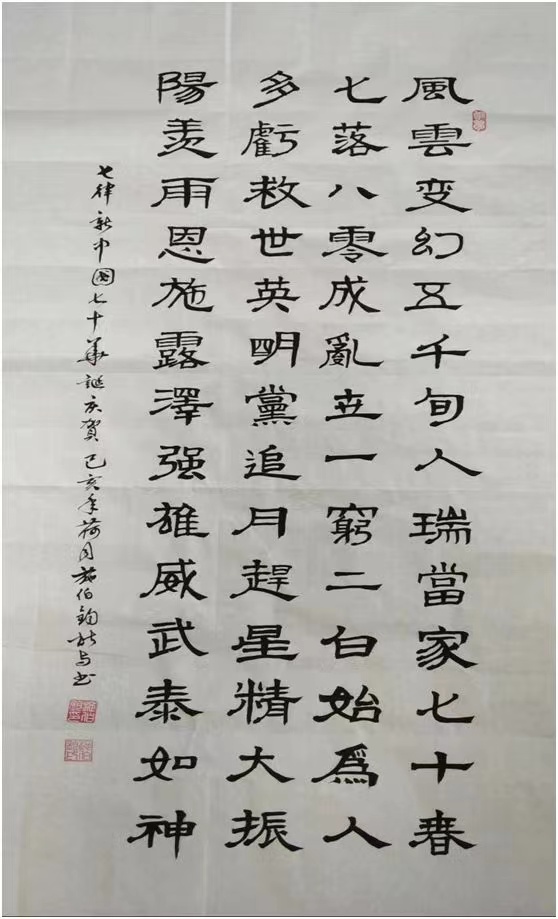 風雲变幻五千旬人瑞當家七十春
七落八零成亂世一窮二白始爲人
多虧救世英明黨追月趕星精大振
陽羡雨恩施露澤强雄威武泰如神
七律新中國七十華誕庆贺 己亥年荷月伯鈞书